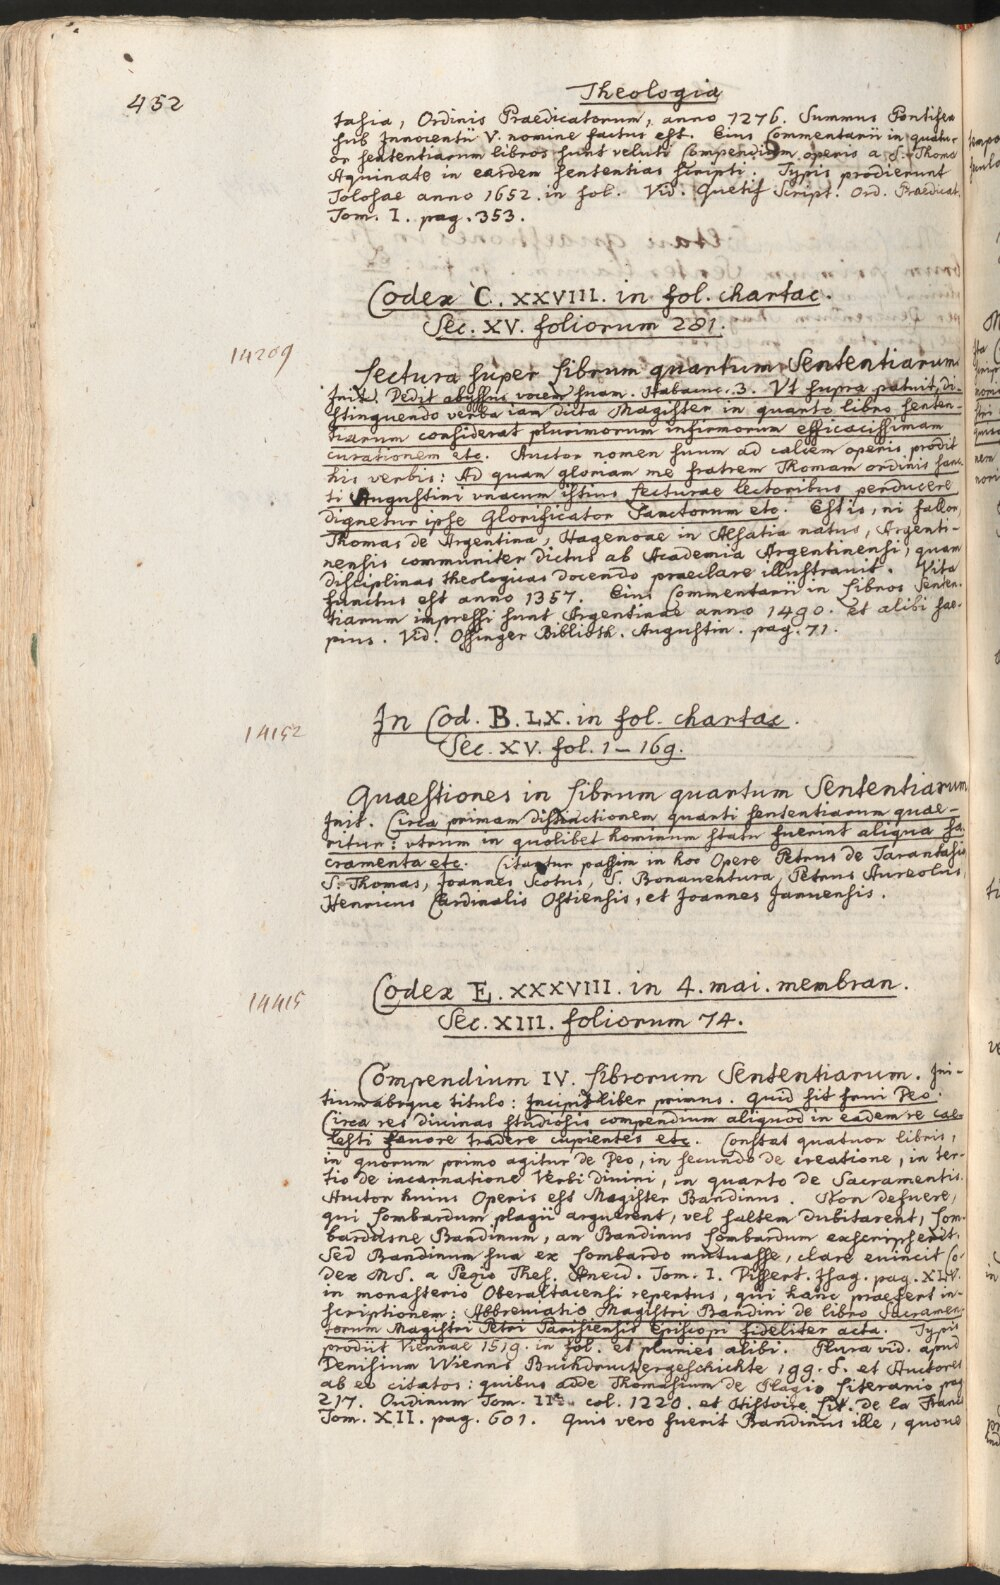 452
Theologia
tasia, Ordinis Praedicatorum, anno 1276. Summus Pontifex
sub Innocentii V. nomine factus est. Eius Commentarii in quatu-
or sententiarum libros sunt veluti Compendium operis a S. Thoma
Aquinate in easdem sententias scripti. Typis prodierunt
Tolosae anno 1652. in fol. Vid. Quetif Script. Ord. Praedicat.
Tom. I. pag. 353.
Codex C. XXVIII. in fol. chartac.
Sec. XV. foliorum 281.
14209
Lectura super Librum quartum Sententiarum
Init. Dedit abyssus vocem suam. Habacuc. 3. Vt supra patuit, di-
stinguendo verba iam dicta Magister in quarto libro senten-
tiarum considerat plurimorum infirmorum efficacissimam
curationem etc. Auctor nomen suum ad calcem operis prodit
his verbis: Ad quam gloriam me fratrem Thomam ordinis sanc-
ti Augustini vnacum istius Lecturae lectoribus perducere
dignetur ipse Glorificator Sanctorum etc. Est is, ni fallor,
Thomas de Argentina, Hagenoae in Alsatia natus, Argenti-
nensis communiter dictus ab Academia Argentinensi, quam
disciplinas theologicas docendo praeclare illustrauit. Vita
functus est anno 1357. Eius Commentarii in Libros Senten-
tiarum impressi sunt Argentinae anno 1490. et alibi sae-
pius. Vid. Ossinger Biblioth. Augustin. pag. 71.
14152
In Cod. B. LX. in fol. chartac.
Sec. XV. fol. 1–169.
Quaestiones in Librum quartum Sententiarum
Init. Circa primam distinctionem quarti sententiarum quae-
ritur: vtrum in quolibet hominum statu fuerint aliqua sa-
cramenta etc. Citantur passim in hoc Opere Petrus de Tarantasia
S. Thomas, Joannes Scotus, S. Bonauentura, Petrus Aureolus,
Henricus Cardinalis Ostiensis, et Joannes Januensis.
14415
Codex E. XXXVIII. in 4. mai. membran.
Sec. XIII. foliorum 74.
Compendium IV. Librorum Sententiarum. Ini-
tium absque titulo: Incipit liber primus. Quid sit frui Deo.
Circa res diuinas studiosis compendium aliquod in eadem re cae-
lesti fauore tradere cupientes etc. Constat quatuor libris,
in quorum primo agitur de Deo, in secundo de creatione, in ter-
tio de incarnatione Verbi diuini, in quarto de Sacramentis.
Auctor huius Operis est Magister Bandinus. Non defuere,
qui Lombardum plagii arguerent, vel saltem dubitarent, Lom-
bardusne Bandinum, an Bandinus Lombardum exscripserit.
Sed Bandinum sua ex Lombardo mutuasse, clare euincit Co-
dex MS. a Pezio Thes. Anecd. Tom. I. Dissert. Isag. pag. XLV.
in monasterio Oberaltacensi repertus, qui hanc praefert in-
scriptionem: Abbreuiatio Magistri Bandini de libro Sacramen-
torum Magistri Petri Parisiensis Episcopi fideliter acta. Typis
prodiit Viennae 1519. in fol. et pluries alibi. Plura vid. apud
Denisium Wienns Buchdruckergeschichte 199. S. et Auctores
ab eo citatos: quibus adde Thomasium de Plagio literario pag.
217. Oudinum Tom. II. col. 1220. et Histoire Lit. de la France
Tom. XII. pag. 601. Quis vero fuerit Bandinus ille, quoue